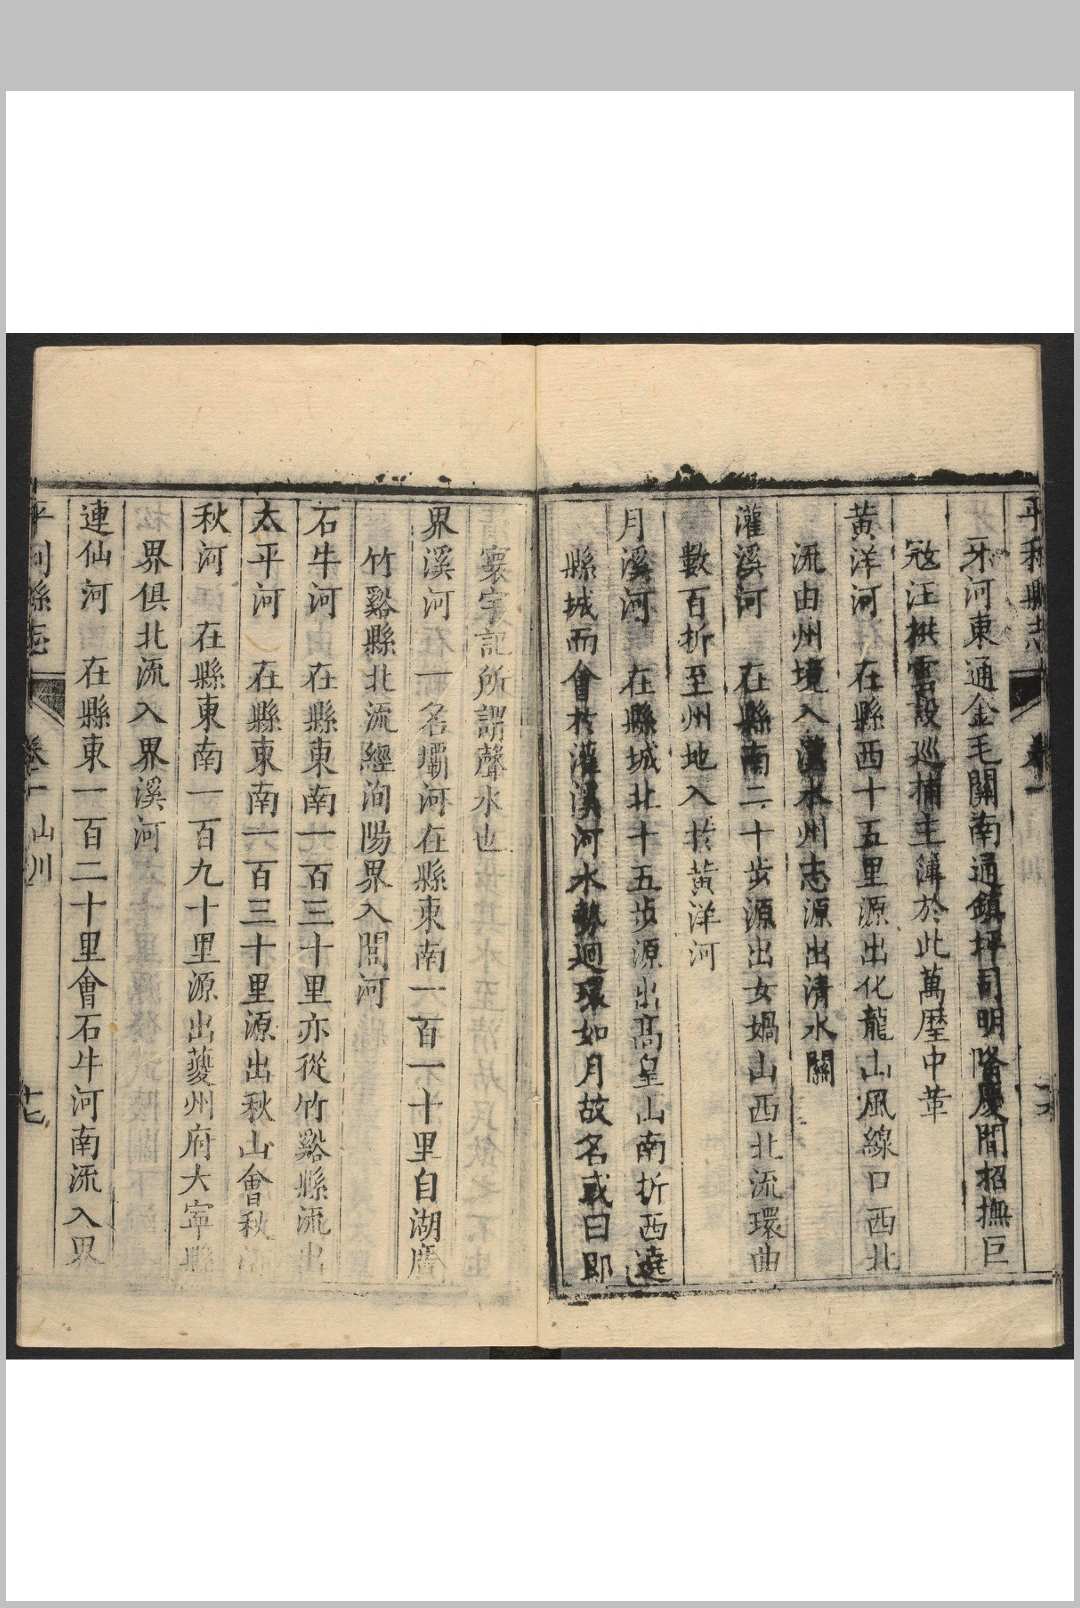 平利縣志
卷一
牙河東通金毛關南通鎮坪司明隆慶間招撫巨
寇汪拱雲設巡捕主簿於此萬歴中革
黃洋河　在縣西十五里源出化龍山風線口西北
流由州境入漢水州志源出清水關
灌溪河　在縣南二十步源出女媧山西北流環曲
數百折至州地入於黃洋河
月溪河　在縣城北十五步源出高皇山南折西遶
縣城而會於灌溪河水勢迴環如月故名或曰即
寰宇記所謂聲水也
界溪河　一名壩河在縣東南一百一十里自湖廣
竹谿縣北流經洵陽界入閭河
石牛河　在縣東南一百三十里亦從竹谿縣流出
太平河　在縣東南一百三十里源出秋山會秋
秋河　在縣東南一百九十里源出夔州府大寧縣
界俱北流入界溪河
連仙河　在縣東一百二十里會石牛河南流入界
平利縣志
卷一
山川
十七